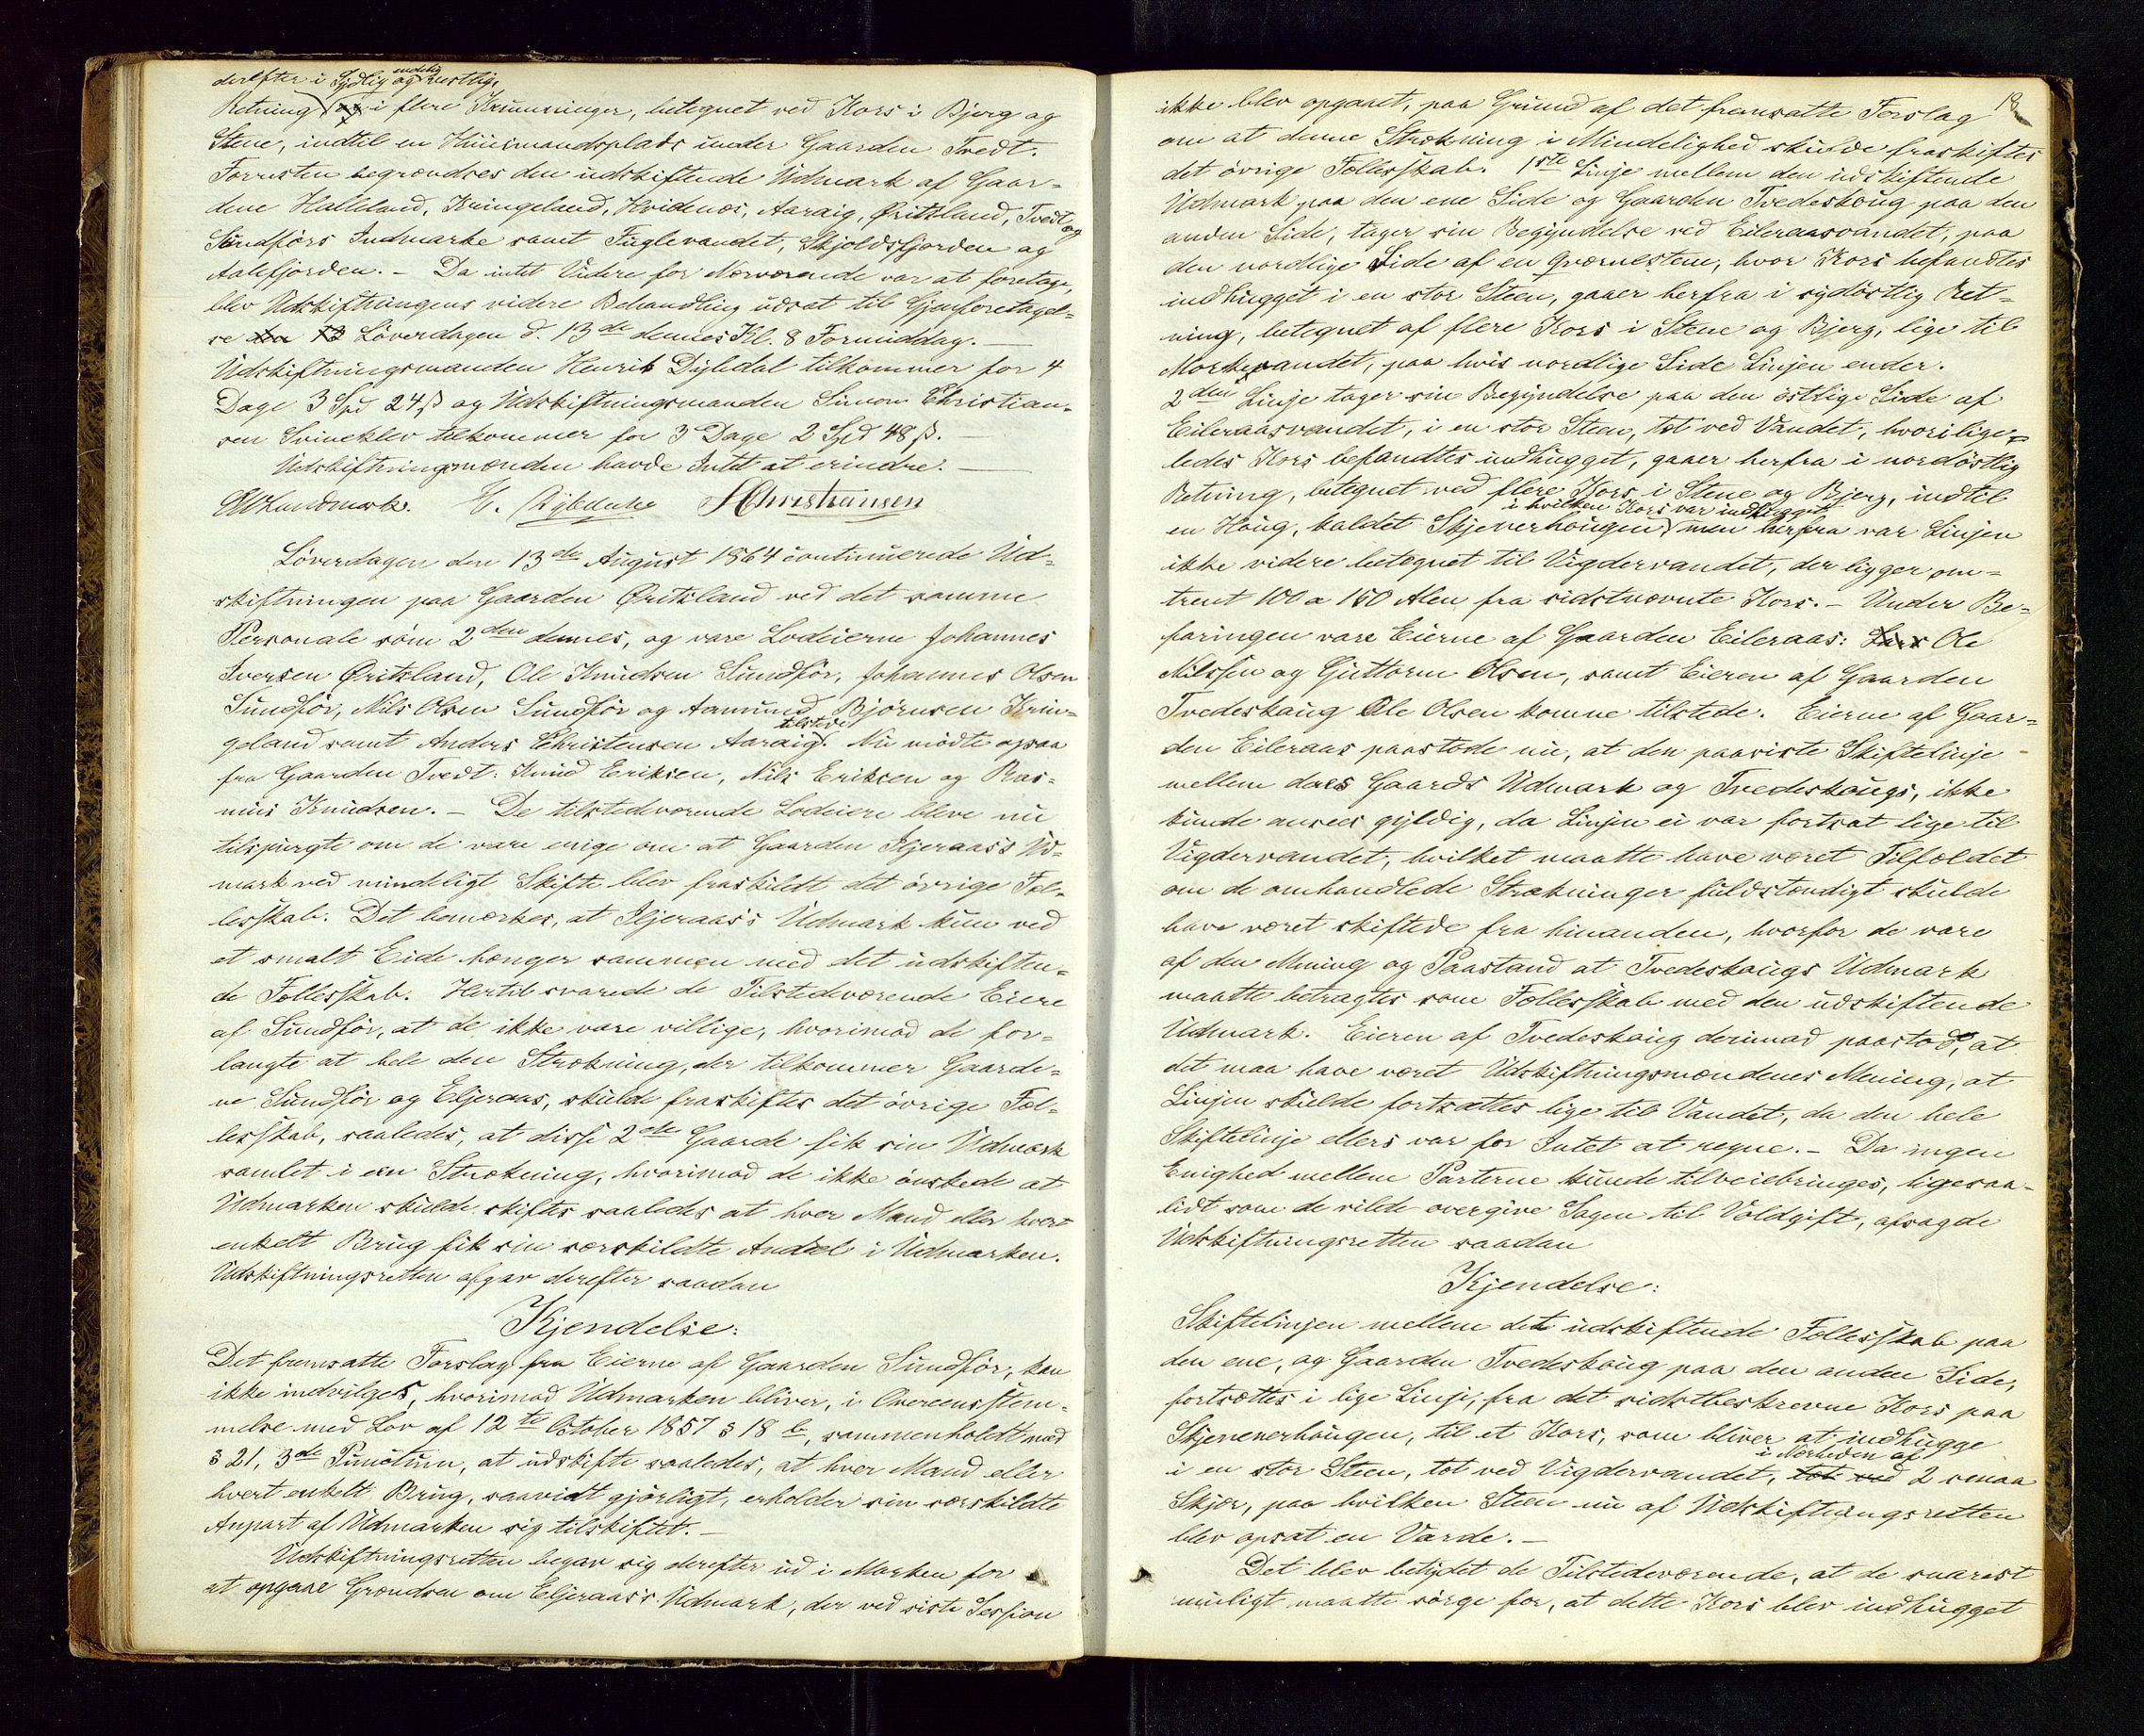 derefter i Sydlig og endelig vestlig,
Retning i flere Krumninger, betegnet ved Kors i Bjerg og
Stene, indtil en Huusmandsplads under Gaarden Tvedt.
Forresten begrændses den udskiftende Udmark af Gaar-
dene Halleland, Kringeland, Hvidenæs, Aaraig, Øritsland, Tvedt og
Sundførs Indmarke samt Fuglevandet, Skjoldsfjorden og
Aalefjorden. – Da intet Videre for Nærværende var at foretage,
blev Udskiftningens videre Behandling udsat til Gjenforetagel-
se den 13 Løverdagen d. 13de dennes Kl. 8 Formiddag. –
Udskiftningsmanden Henrik Dybdal tilkommer for 4
Dage 3 Spd 24 ß og Udskiftningsmanden Simon Christian-
sen Svineklev tilkommer for 3 Dage 2 Spd 48 ß. –
Udskiftningsmændene havde Intet at erindre. –
Landmark. H. Dybdahl SChristiansen
Løverdagen den 13de August 1864 continuerede Ud-
skiftningen paa Gaarden Øritsland ved det samme
Personale som 2den dennes, og vare Lodeierne Johannes
Iversen Øritsland, Ole Knudsen Sundfør, Johannes Olsen
Sundfør, Nils Olsen Sundfør og Aamund Bjørnsen Krin-
geland samt Anders Christensen Aaraig tilstede. Nu mødte ogsaa
fra Gaarden Tvedt: Knud Eriksen, Nils Eriksen og Ras-
mus Knudsen. – De tilstedværende Lodeiere bleve nu
tilspurgte om de vare enige om at Gaarden Iljeraas's Ud-
mark ved mindeligt Skifte blev fraskildt det øvrige Fæl-
lesskab. Det bemærkes, at Iljeraas's Udmark kun ved
et smalt Eide hænger sammen med det udskiften-
de Fællesskab. Hertil svarede de Tilstedeværende Eiere
af Sundfør, at de ikke vare villige, hvorimod de for-
langte at hele den Strækning, der tilkommer Gaarde-
ne Sundfør og Eljeraas, skulde fraskiftes det øvrige Fæl-
lesskab, saaledes, at disse 2de Gaarde fik sin Udmark
samlet i een Strækning, hvorimod de ikke ønskede at
Udmarken skulde skiftes saaledes at hver Mand eller hvert
enkelt Brug fik sin særskildte Andeel i Udmarken.
Udskiftningsretten afgav derefter saadan
Kjendelse:
Det fremsatte Forslag fra Eierne af Gaarden Sundfør, kan
ikke indvilges, hvorimod Udmarken bliver, i Overeensstem-
melse med Lov af 12te October 1857 § 18 b, sammenholdt med
§ 21, 3de Punctum, at udskifte saaledes, at hver Mand eller
hvert enkelt Brug, saavidt gjørligt, erholder sin særskildte
Anpart af Udmarken sig tilskiftet. –
Udskiftningsretten begav sig derefter ud i Marken for
at opgaae Grændsen om Eljeraas's Udmark, der ved siste Session
18
ikke blev opgaaet, paa Grund af det fremsatte Forslag
om at denne Strækning i Mindelighed skulde fraskiftes
det øvrige Fællesskab. 1ste Linje mellem den udskiftende
Udmark paa den ene Side og Gaarden Tvedeskoug paa den
anden Side, tager sin Begyndelse ved Eileraasvandet, paa
den nordlige Side af en Qværnestene, hvor Kors befandtes
indhugget i en stor Steen, gaaer herfra i sydøstlig Ret-
ning, betegnet af flere Kors i Stene og Bjerg, lige til
Morkevandet, paa hvis nordlige Side Linjen ender.
2den Linje tager sin Begyndelse paa den østlige Side af
Eileraasvandet, i en stor Steen, tæt ved Vandet, hvori lige-
ledes Kors befandtes indhugget, gaaer herfra i nordøstlig
Retning, betegnet ved flere Kors i Stene og Bjerg, indtil
en Houg, kaldet Skjeverhougen, i hvilken Kors var indhugget men herfra var Linjen
ikke videre betegnet til Vigdervandet, der ligger om-
trent 100 a 150 Alen fra sidstnævnte Kors. – Under Be-
faringen vare Eierne af Gaarden Eileraas: Lars Ole
Nilssen og Guttorm Olsen, samt Eieren af Gaarden
Tvedeskoug Ole Olsen komne tilstede. Eierne af Gaar-
den Eileraas paastode nu, at den paaviste Skiftelinje
mellem deres Gaards Udmark og Tvedeskougs, ikke
kunde ansees gyldig, da Linjen ei var fortsat lige til
Vigdervandet, hvilket maatte have været Tilfældet
om de omhandlede Strækninger fuldstændigt skulde
have været skiftede fra hinanden, hvorfor de vare
af den Mening og Paastand at Tvedeskougs Udmark
maatte betragtes som Fællesskab med den udskiftende
Udmark. Eieren af Tvedeskoug derimod paastod, at
det maa have været Udskiftningsmændenes Mening, at
Linjen skulde fortsættes lige til Vandet, da den hele
Skiftelinje ellers var for Intet at regne. – Da ingen
Enighed mellem Parterne kunde tilveiebringes, ligesaa-
lidt som de vilde overgive Sagen til Voldgift, afsagde
Udskiftningsretten saadan
Kjendelse:
Skiftelinjen mellem det udskiftende Fællesskab paa
den ene, og Gaarden Tvedeskoug paa den anden Side,
fortsættes i lige Linje, fra det sidstbeskrevne Kors paa
Skjeverhougen, til et Kors, som bliver at indhugge
i en stor Steen, tæt ved Vigdervandet, tæt ved i Nærheden af 2 smaa
Skjær, paa hvilken Steen nu af Udskiftningsretten
blev opsat en Varde. –
Det blev betydet de Tilstedeværende, at de snarest
muligt maatte sørge for, at dette Kors blev indhugget